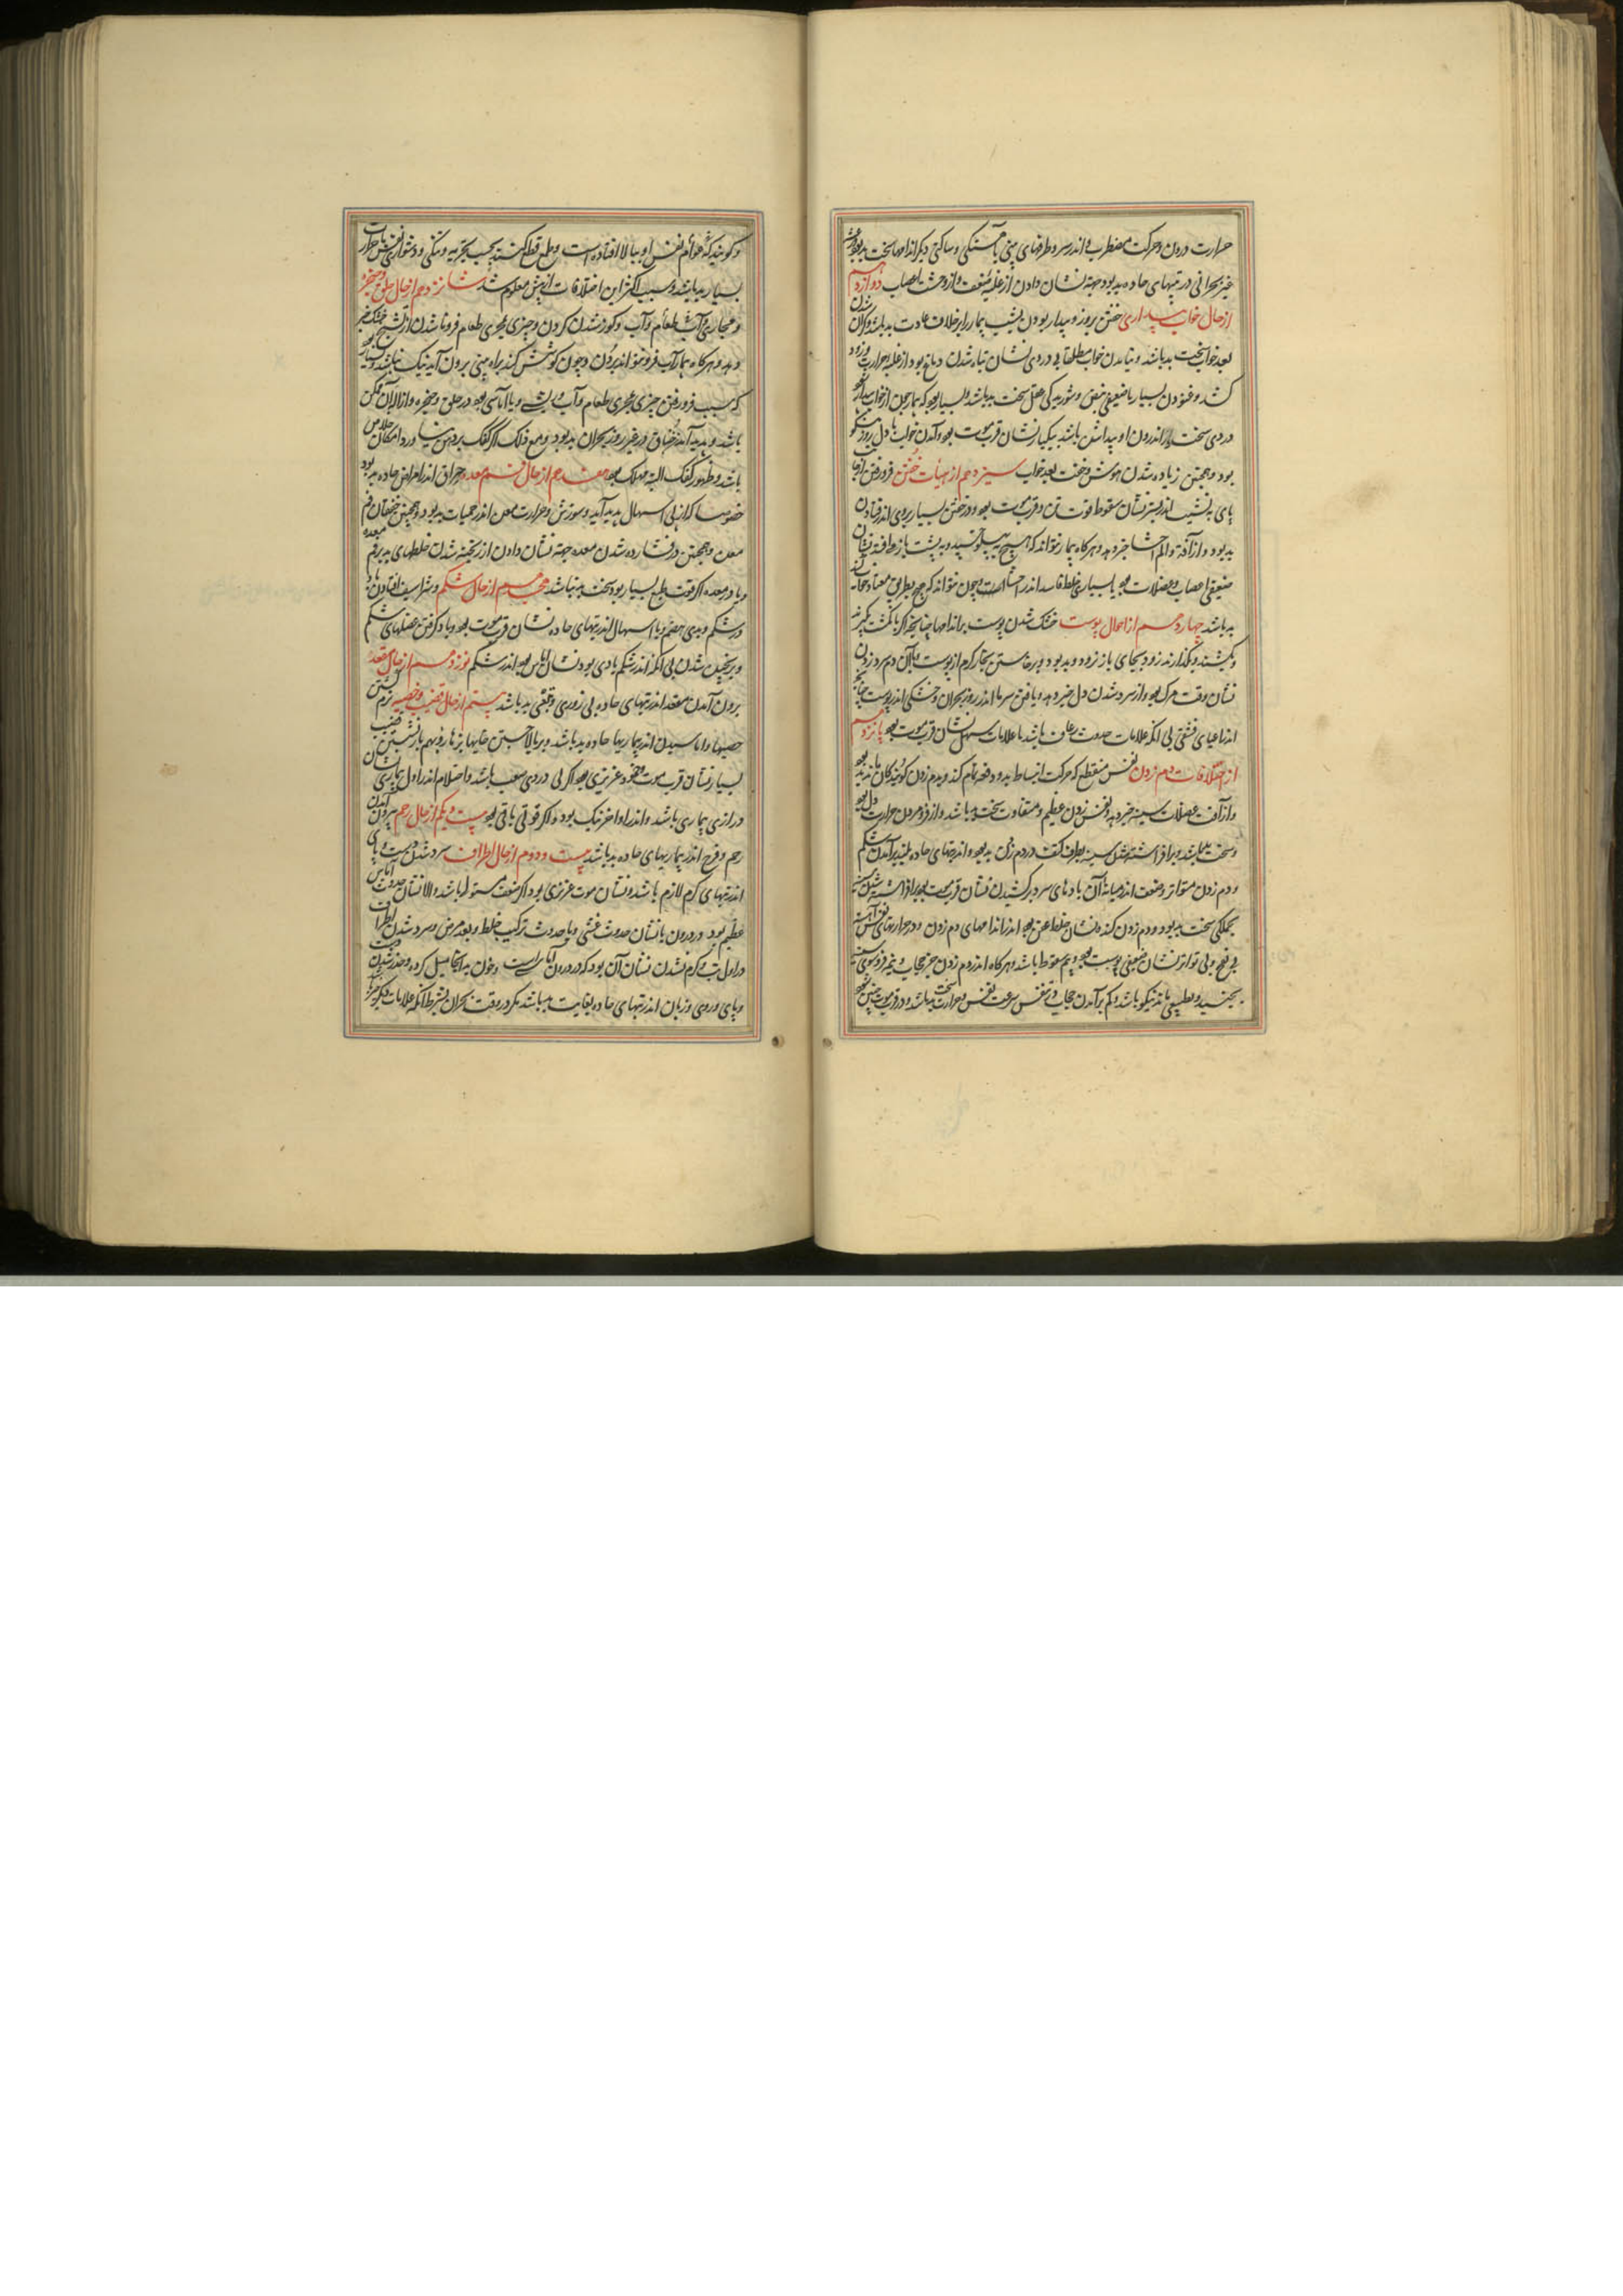 حرارت درون و حرکت مضطرب اندر سر و طرفهای بینی با آهستگی و ساکنی دیگر اندامها سخت بد بود
غیر بحرانی در تبهای حاده بد بود جهة نشان دادن از غلبه ضعف و از وحشت اعصاب دوازدهم
از حال خواب و بیداری خفتن بروز و بیدار بودن بشب بیمار را بر خلاف عادت بد باشد و گران شدن
بعد خواب سخت بد باشد و نیامدن خواب مطلقا بی دردی نشان تباه شدن دماغ بود از غلبه حرارت و زود
کشد و غنودن بسیار با ضعیفی نبض و شوریدگی عقل سخت بد باشد و بسیار بود که بیمار چون از خواب بیدار شود
دردی سخت اندر اندرون او پیدا شده باشد بیکبار نشان قرب موت بود و آمدن خواب باول روز نیکو
بود و همچنین زیاده شدن هوش و خفت بعد خواب سیزدهم از هیأت خفتن فرو رفتن از جا
پای به نشیب اندر بستر نشان سقوط قوت تن و قرب موت بود و در خفتن بسیار بروی اندر فتادن
بد بود و از آفة و الم احشا خبر دهد و هرگاه بیمار نتواند که هیچ به پهلو خسپد و به پشت باز هافتد نشان
ضعیفی اعصاب و عضلات بود یا بسیاری خلط فاسد اندر احشا است و چون نتواند که جز بطریق معتاد خواب کند
بد باشد چهاردهم از احوال پوست خشک شدن پوست بر اندامها چنانچه اگر بانگشت بگیرند
و بکشند و بگذارند زود بجای باز نرود بد بود و بر خاستن بخار گرم از پوست با آن دم سرد زدن
نشان وقت مرگ بود و از سرد شدن دل خبر دهد و یافتن سرما اندر روز بحران و خشکی اندر پوست چنانچه
اندر اعیای قشفی بی آنکه علامات حدوث رعاف باشد یا علامات اسهال نشان قرب موت بود پانزدهم
از اختلافات دم زدن نفس منقطع که حرکت انبساط بدو دفعه تمام کند و بدم زدن کودکان ماند بد بود
و از آفت عضلات سینه خبر دهد و نفس زدن عظیم و متفاوت سخت بد باشد و از فرو مردن حرارت دل بود
و سخت بد باشد و بر افراشته شدن سینه بطرف کتف در دم زدن بد بود و اندر تبهای حاده بلند برآمدن شکم
و دم زدن متواتر و ضعف اندر میانه آن بادهای سرد بر کشیدن نشان قرب موت بود و بر افراشته شدن سینه
بجملگی سخت بد بود و دم زدن کنده نشان خلط عفن بود اندر اندامهای دم زدن و در حرارتهای نفس آهسته
بی نفخ و بی تواتر نشان ضعیفی پوست بود و بیم سقوط باشد و هرگاه اندر دم زدن جز حجاب و نیمه فرو سوی سینه
نجنبد و طبیعی ماند نیکو باشد و کم برآمدن حجاب در تنفس سرعت نفس و حرارت سخت بد باشد و در قرب موت چنین شود
و گویند که قوائم نفس او ببالا افتاده است و طمع قطع کنند بحسب تجربه و تنگی و دشواری نفس با حرارت
بسیار بد باشد و سبب اکثر این اختلافات از پیش معلوم شد شانزدهم از حال حلق و حنجره
و مجاری آب طعام و آب و کوز شدن گردن و چیزی بمجری طعام فرو ناشدن از تشنج خشک خبر
دهد و هرگاه بیمار آب فرو نتواند بردن و چون کوشش کند براه بینی برون آید نیک نباشد
که سبب فرو رفتن چیزی بمجری طعام و آب ورمی و یا آماسی بود در حلق و حنجره و ازاله آن ممکن
باشد و پدید آمدن خناق در غیر روز بحران بد بود و مع ذلک اگر کفک بر دهن بیاورد امکان خلاص
باشد و ظهور کفک البته مهلک بود هفدهم از حال فم معده حراق اندر امراض حاده بد بود
خصوصا که از پی اسهال پدید آید و سوزش و حرارت معده اندر حمیات بد بود و همچنین خفقان فم
معده و همچنین در فشارده شدن معده جهة نشان دادن از ریخته شدن خلطهای بد بر فم معده
و یا در معده اگر قوت طبع بسیار بود سخت بد نباشد هجدهم از حال شکم و شراسیف افتادن باد
در شکم و بدی هضم و یا اسهال اندر تبهای حاده نشان قرب موت بود و باد گرفتن عضلهای شکم
و بر نخیدن شدن بی آنکه اندر شکم بادی بود نشان آماس بود اندر شکم نوزدهم از حال مقعد
برون آمدن مقعد اندر تبهای حاده بی زوری و قتی بد باشد بیستم از حال قضیب و خصیه نرم گشتن
خصیها و آماسیدن اندر بیماریها حاده بد باشد و ببالا جستن خایها بزهار و بهم باز نشستن قضیب
بسیار نشان قرب موت و خمود غریزی بود اگر بی دردی صعب باشد و احتلام اندر اول بیماری نشان
درازی بیماری باشد و اندر اواخر نیک بود و اگر قوتی باقی بود بیست و یکم از حال رحم بیرون آمدن
رحم و فرج اندر بیماریهای حاده بد باشد بیست و دوم از حال اطراف سرد شدن دست و پای
اندر تبهای گرم لازم باشد و نشان موت غریزی بود اگر ضعف مستولی باشد و الا نشان حدوث آماس
عظیم بود در درون یا نشان حدوث غشی و یا حدوث ترکیب خلط و بعد مرض و سرد شدن اطراف
در اول تب و گرم نشدن نشان آن بود که در درون آماس است و خون بدانجا میل کرده و خدر شدن دست
و پای و روی و زبان اندر تبهای حاده بغایت بد باشد مگر در وقت بحران بشرط آنکه علامات دیگر خیر باشد